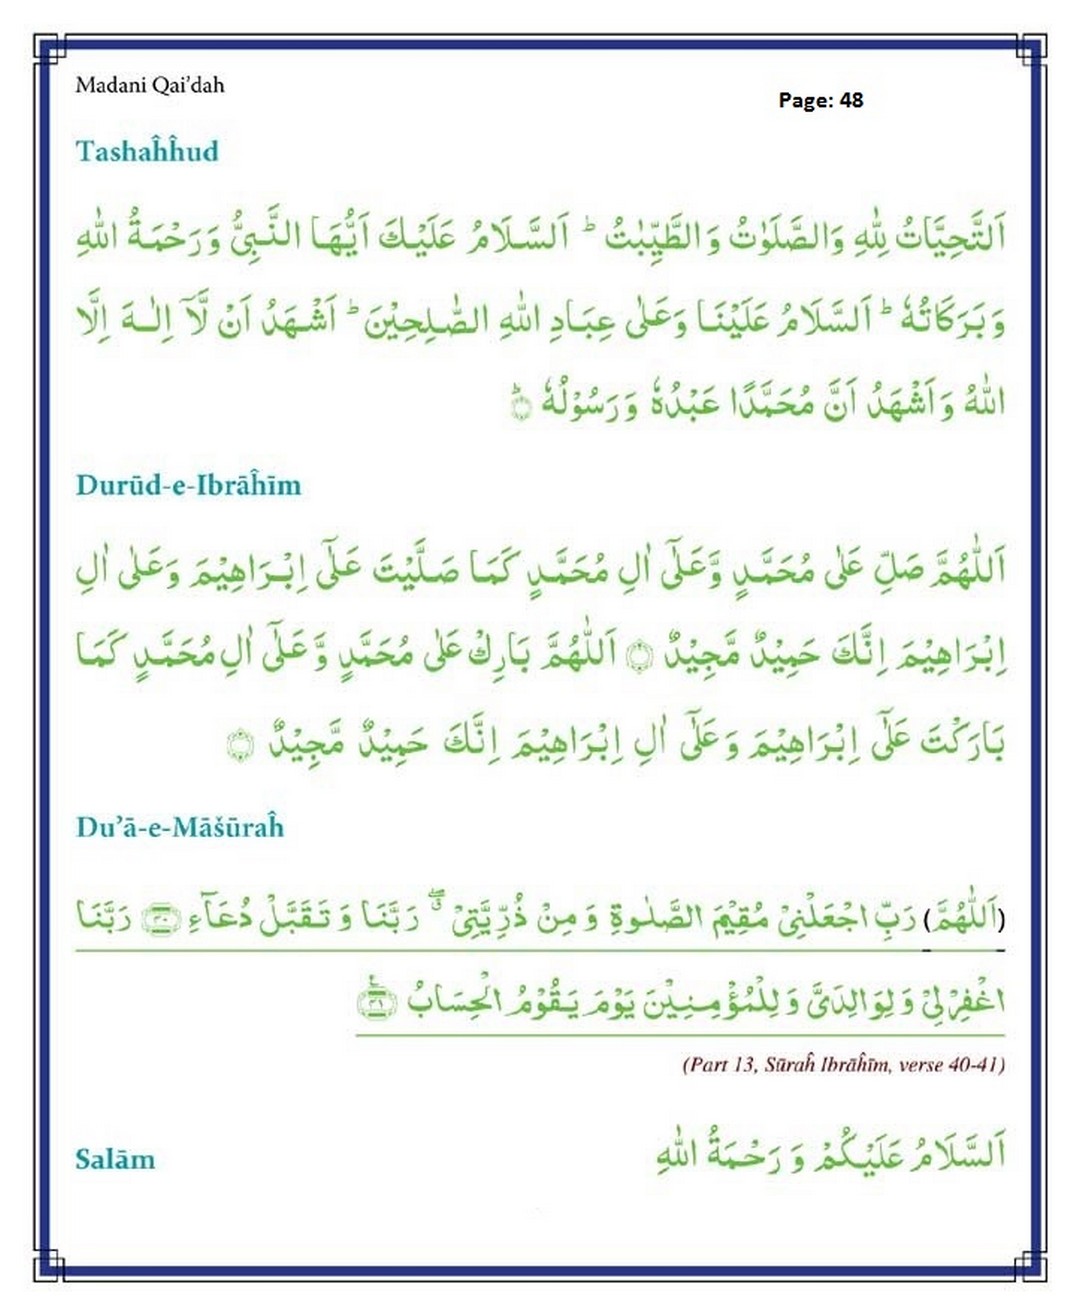 Madani Qai’dah
Page: 48
Tashaĥĥud
اَلتَّحِيَّاتُ لِلّٰهِ وَالصَّلَوٰتُ وَالطَّيِّبٰتُ ؕ اَلسَّلَامُ عَلَيْكَ اَيُّهَا النَّبِىُّ وَرَحْمَةُ اللّٰهِ
وَبَرَكَاتُهٗ ؕ اَلسَّلَامُ عَلَيْنَا وَعَلٰى عِبَادِ اللّٰهِ الصّٰلِحِيْنَ ؕ اَشْهَدُ اَنْ لَّاۤ اِلٰـهَ اِلَّا
اللّٰهُ وَاَشْهَدُ اَنَّ مُحَمَّدًا عَبْدُهٗ وَرَسُوْلُهٗ ؕ
Durūd-e-Ibrāĥīm
اَللّٰهُمَّ صَلِّ عَلٰى مُحَمَّدٍ وَّعَلٰۤى اٰلِ مُحَمَّدٍ كَمَا صَلَّيْتَ عَلٰۤى اِبْرَاهِيْمَ وَعَلٰۤى اٰلِ
اِبْرَاهِيْمَ اِنَّكَ حَمِيْدٌ مَّجِيْدٌ ۝ اَللّٰهُمَّ بَارِكْ عَلٰى مُحَمَّدٍ وَّعَلٰۤى اٰلِ مُحَمَّدٍ كَمَا
بَارَكْتَ عَلٰۤى اِبْرَاهِيْمَ وَعَلٰۤى اٰلِ اِبْرَاهِيْمَ اِنَّكَ حَمِيْدٌ مَّجِيْدٌ ۝
Du’ā-e-Māšūraĥ
(اَللّٰهُمَّ) رَبِّ اجْعَلْنِىْ مُقِيْمَ الصَّلٰوةِ وَمِنْ ذُرِّيَّتِىْ ۖق رَبَّنَا وَتَقَبَّلْ دُعَآءِ ﴿۴۰﴾ رَبَّنَا
اغْفِرْ لِىْ وَلِوَالِدَىَّ وَلِلْمُؤْمِنِيْنَ يَوْمَ يَقُوْمُ الْحِسَابُ ﴿۴۱﴾
(Part 13, Sūraĥ Ibrāĥīm, verse 40-41)
Salām
اَلسَّلَامُ عَلَيْكُمْ وَرَحْمَةُ اللّٰهِ